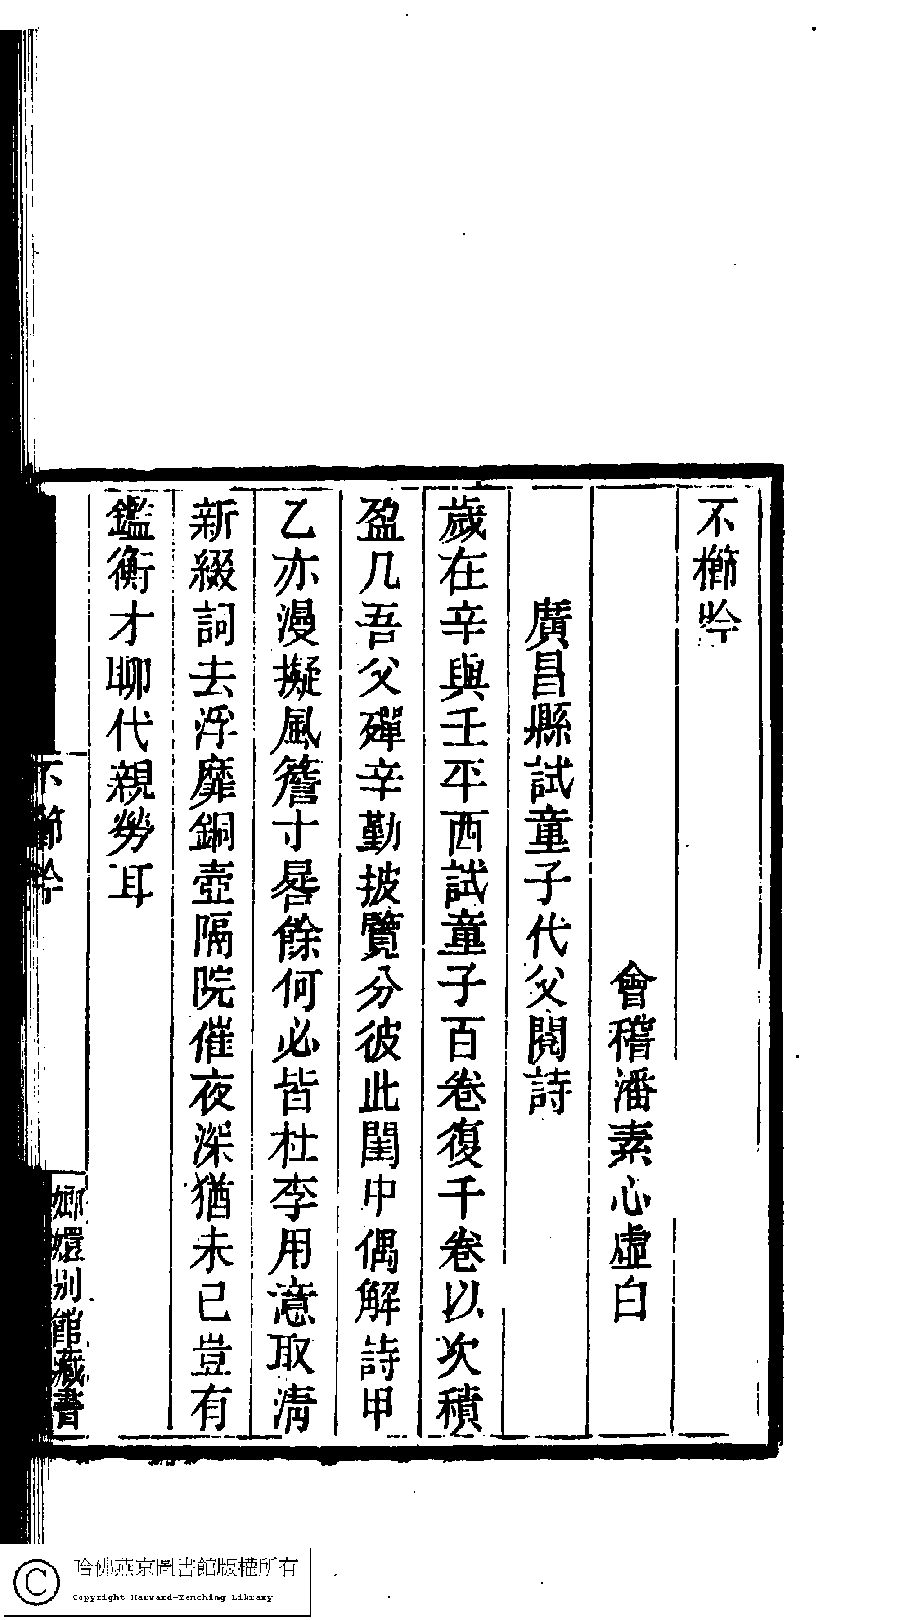 不櫛吟
會稽潘素心虛白
廣昌縣試童子代父閱詩
歲在辛與壬平西試童子百卷復千卷以次積
盈几吾父殫辛勤披覽分彼此閨中偶解詩甲
乙亦漫擬風簷寸晷餘何必皆杜李用意取清
新綴詞去浮靡銅壺隔院催夜深猶未已豈有
鑑衡才聊代親勞耳
不櫛吟
嫏嬛別館藏書
哈佛燕京圖書館版權所有
Copyright Harvard-Yenching Library